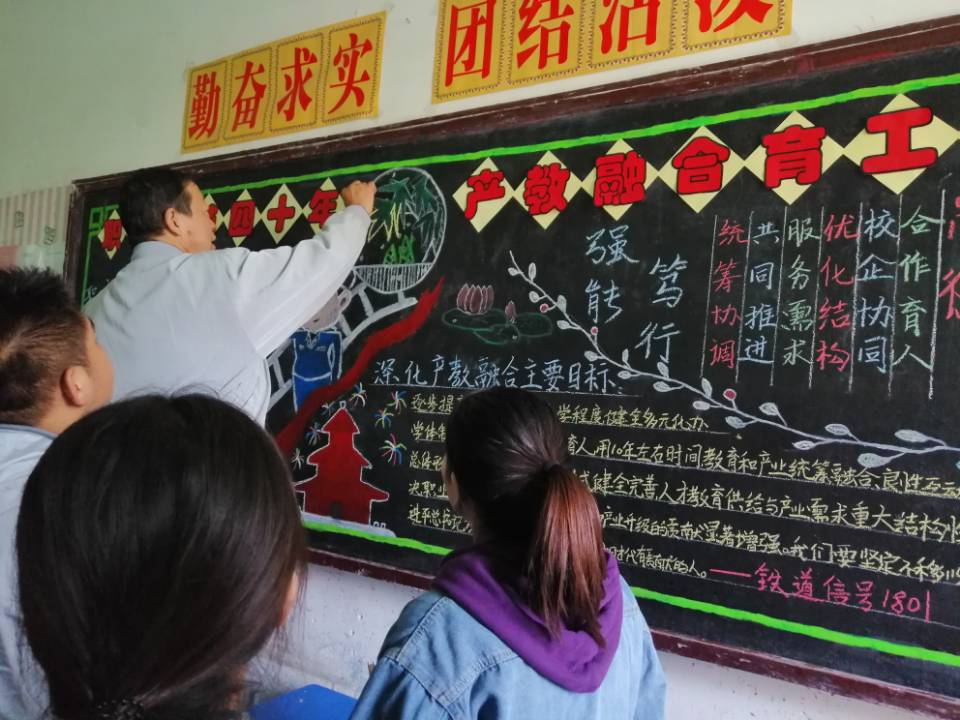 勤奋求实
团结活泼
四十年
产教融合育工
强能
笃行
合作育人
校企协同
优化结构
服务需求
共同推进
统筹协调
深化产教融合主要目标、
逐步提
学程度健全多元化办
学体制
育人用10年左右时间教育和产业统筹融合、良性互动
总体形
式健全完善人才教育供给与产业需求重大结构性
决职业
产业升级的贡献显著增强。我们要坚定不移
时代有贡献的人。——铁道信号1801